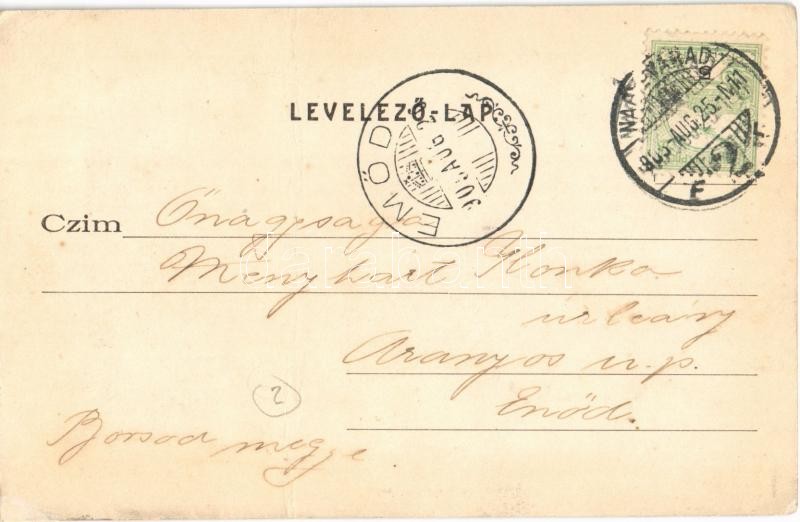 LEVELEZŐ-LAP
NAGYVÁRAD
905 AUG. 25
EMŐD
905 AUG 2
Czim Őnagysága
Menyhart Ilonka
urleány
Aranyos u.p.
Emőd.
Borsod megye
2